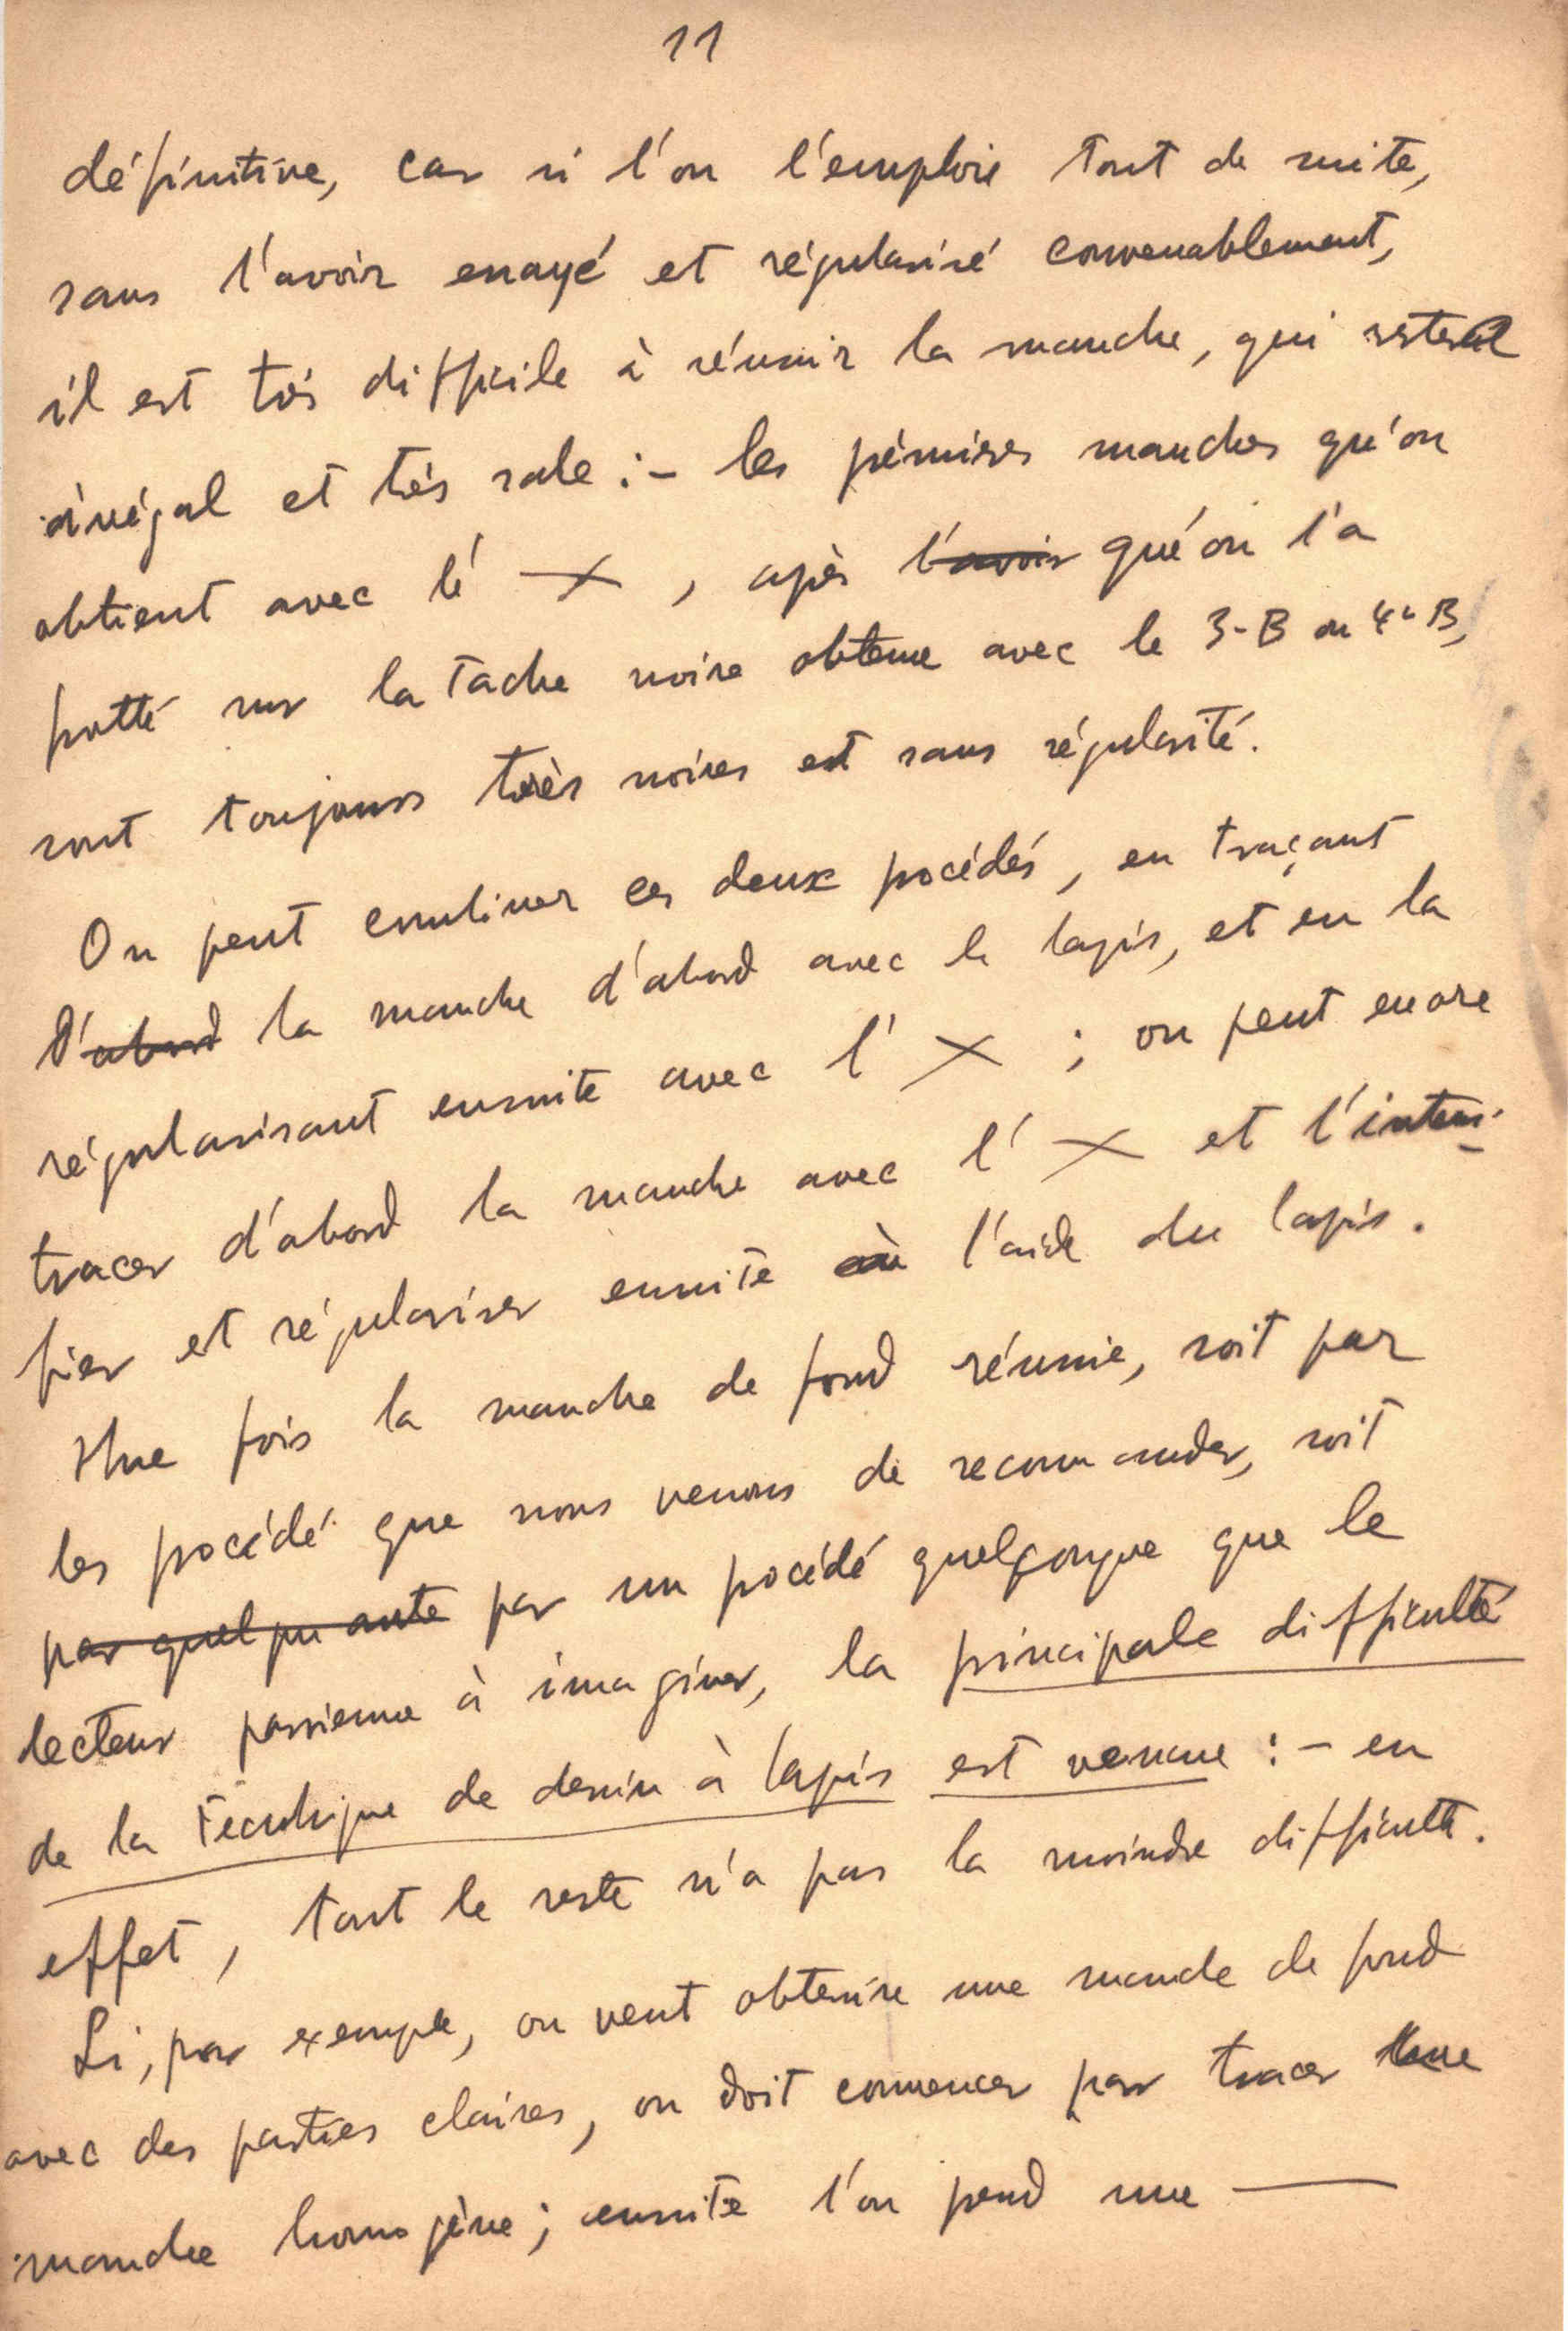 11
définitive, car si l'on l'emploie tout de suite,
sans l'avoir essayé et régularisé convenablement,
il est très difficile à réunir la manche, qui reste
inégal et très sale :- les prémières manches qu'on
obtient avec lé X, après l'avoir qu'on l'a
frotté sur la tache noire obtenue avec le 3-B ou 4-B,
sont toujours très noires et sans régularité.
On peut combiner ces deux procédés, en traçant
d'abord la manche d'abord avec le lapis, et en la
régularisant ensuite avec l' X ; on peut encore
tracer d'abord la manche avec l' X et l'intensi-
fier et régulariser ensuite à l'aide du lapis.
Une fois la manche de fond réunie, soit par
les procédé que nous venons de recommander, soit
par quelqu autre par un procédé quelqonque que le
lecteur parvienne à imaginer, la principale difficulté
de la téchnique de dessin à lapis est vencue :- en
effet, tout le reste n'a pas la moindre difficulté.
Si, par exemple, on veut obtenire une manche de fond
avec des parties claires, on doit commencer par tracer une
manche homogène; ensuite l'on prend une —